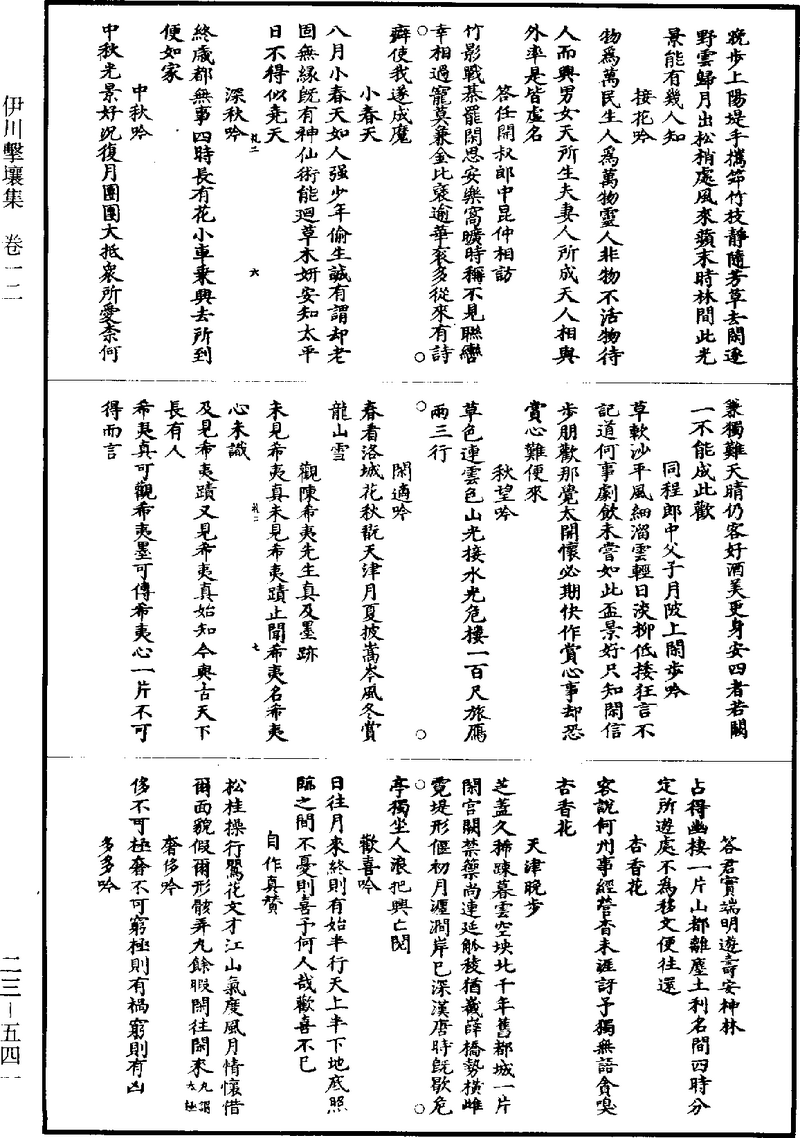 伊川擊壤集　卷一二
晚步上陽堤手攜筇竹枝靜隨芳草去閑逐
野雲歸月出松梢處風來蘋末時林間此光
景能有幾人知
接花吟
物爲萬民生人爲萬物靈人非物不活物待
人而興男女天所生夫妻人所成天人相與
外率是皆虛名
答任開叔郎中昆仲相訪
竹影戰棊罷閑思安樂窩曠時稱不見聯轡
幸相過寵莫兼金比褒逾華衮多從來有詩
癖使我遂成魔
小春天
八月小春天如人强少年偷生誠有謂却老
固無緣旣有神仙術能迴草木妍安知太平
日不得似堯天
深秋吟
終歲都無事四時長有花小車乘興去所到
便如家
中秋吟
中秋光景好況復月團團大抵衆所愛柰何
兼獨難天晴仍客好酒美更身安四者若闕
一不能成此歡
同程郎中父子月陂上閑步吟
草軟沙平風細溜雲輕日淡柳低挼狂言不
記道何事劇飲未嘗如此盃景好只知閑信
步朋歡那覺太開懷必期快作賞心事却恐
賞心難便來
秋望吟
草色連雲色山光接水光危樓一百尺旅鴈
兩三行
閑適吟
春看洛城花秋翫天津月夏披嵩岑風冬賞
龍山雪
觀陳希夷先生真及墨跡
未見希夷真未見希夷蹟止聞希夷名希夷
心未識
及見希夷蹟又見希夷真始知今與古天下
長有人
希夷真可觀希夷墨可傳希夷心一片不可
得而言
答君實端明遊壽安神林
占得幽棲一片山都離塵土利名間四時分
定所遊處不爲移文便往還
杏香花
客說何州事經營杳未涯訝予獨無語貪嗅
杏香花
天津晚步
芝蓋久稀踈暮雲空坱北千年舊都城一片
閑宮闕禁藥尚連延觚稜猶巀嶭橋勢橫雌
霓堤形偃初月瀍澗岸已深漢唐時旣歇危
亭獨坐人浪把興亡閱
歡喜吟
日往月來終則有始半行天上半下地底照
臨之間不憂則喜予何人哉歡喜不已
自作真贊
松桂操行鶯花文才江山氣度風月情懷借
爾面貌假爾形骸弄丸餘暇閑往閑來丸謂太極
奢侈吟
侈不可極奢不可窮極則有禍窮則有凶
多多吟
二三－五四一